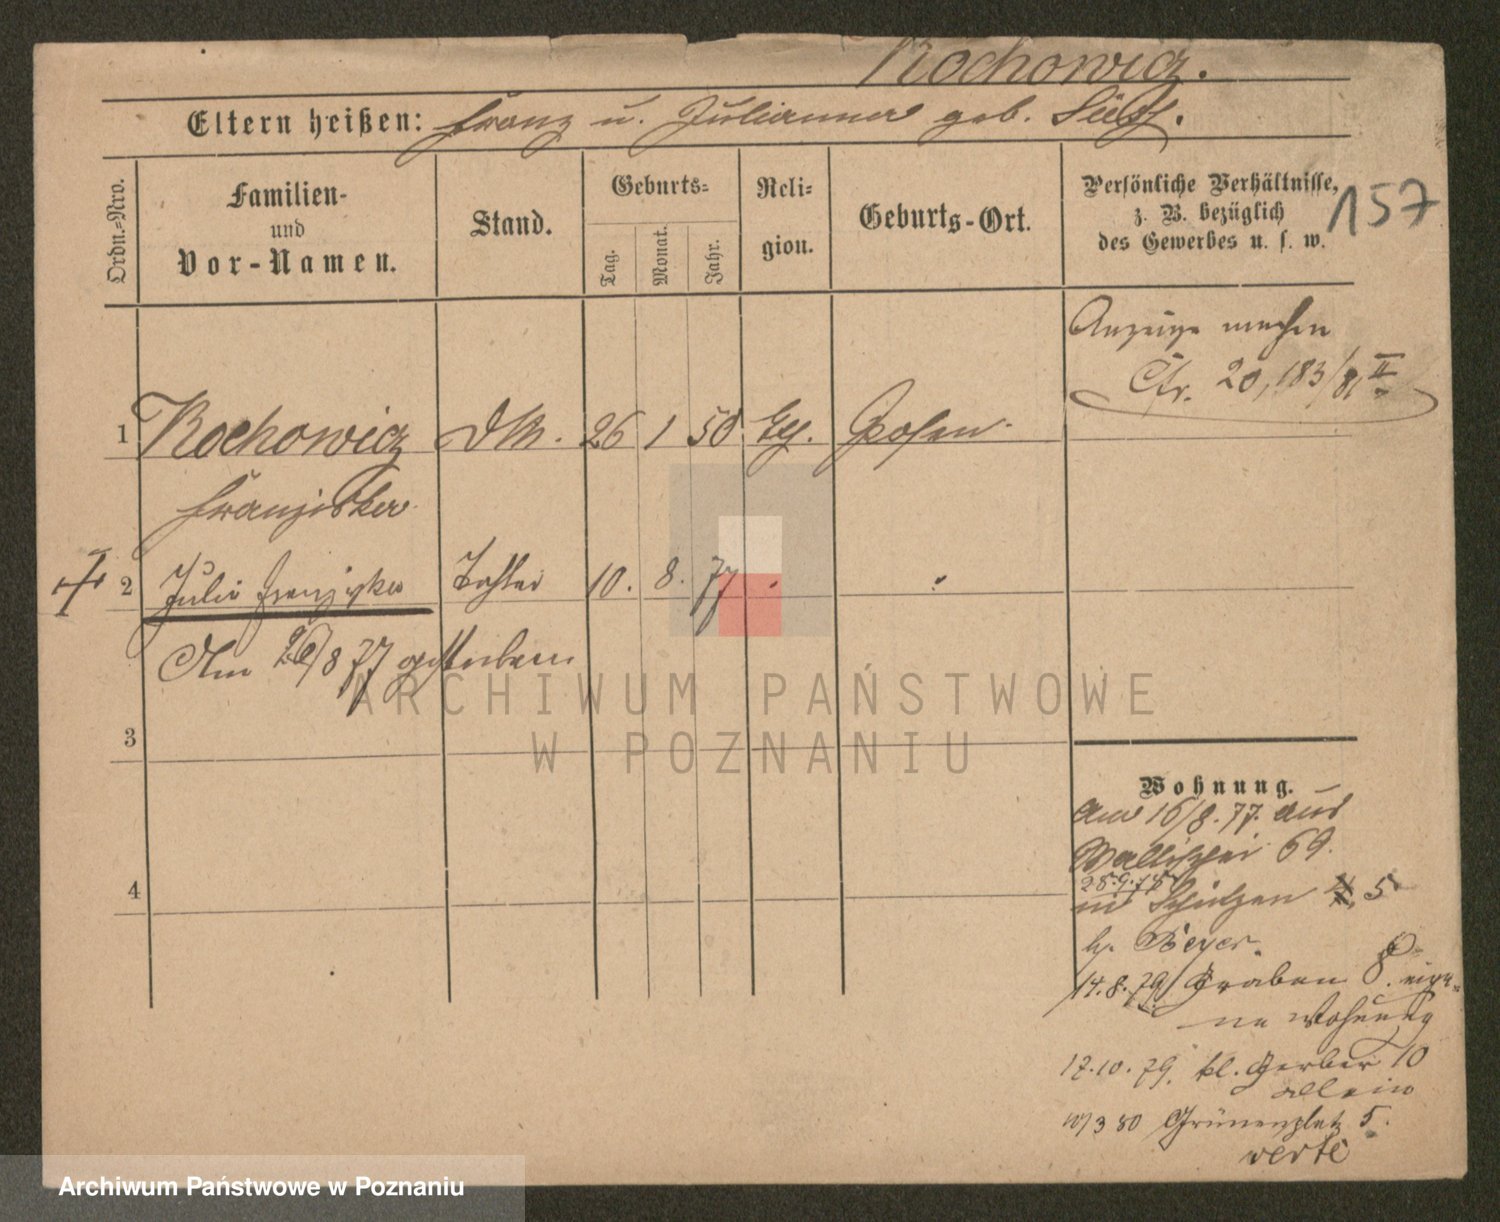 Rochowicz.
Eltern heißen: Franz u. Julianna geb.
Ordn.-Nro.
Familien-
und
Vor-Namen.
Stand.
Geburts-
Tag.
Monat.
Jahr.
Reli-
gion.
Geburts-Ort.
Persönliche Verhältnisse,
z. B. bezüglich
des Gewerbes u. s. w.
157
Anzeige machen
Cfr. 20,183/81 II
1 Rochowicz 26 1 50 Posen
Franziska
2 Julie Franziska Tochter 10. 8. 77
Am 26/8 77 gestorben
3
4
Wohnung.
am 16/8. 77. aus
Wallischei 69.
25.9.78
in Schützen 5
b. Beyer.
14.8.79 Graben 8. eige-
ne Wohnung
17.10.79. kl. Gerber 10
allein
10/3 80 Grünenplatz 5.
verte
ARCHIWUM PAŃSTWOWE
W POZNANIU
Archiwum Państwowe w Poznaniu